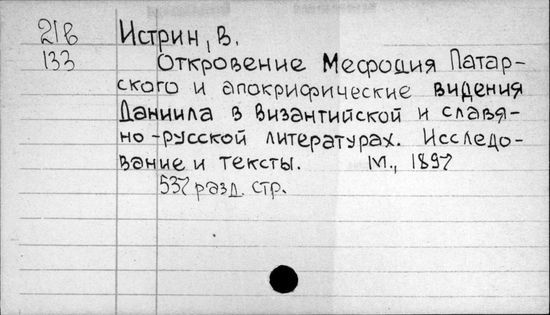 21в Истрин, В.
133 Откровение Мефодия Патар-
ского и апокрифические видения
Даниила в византийской и славя-
но-русской литературах. Исследо-
вание и тексты. М., 1897
537 разд. стр.